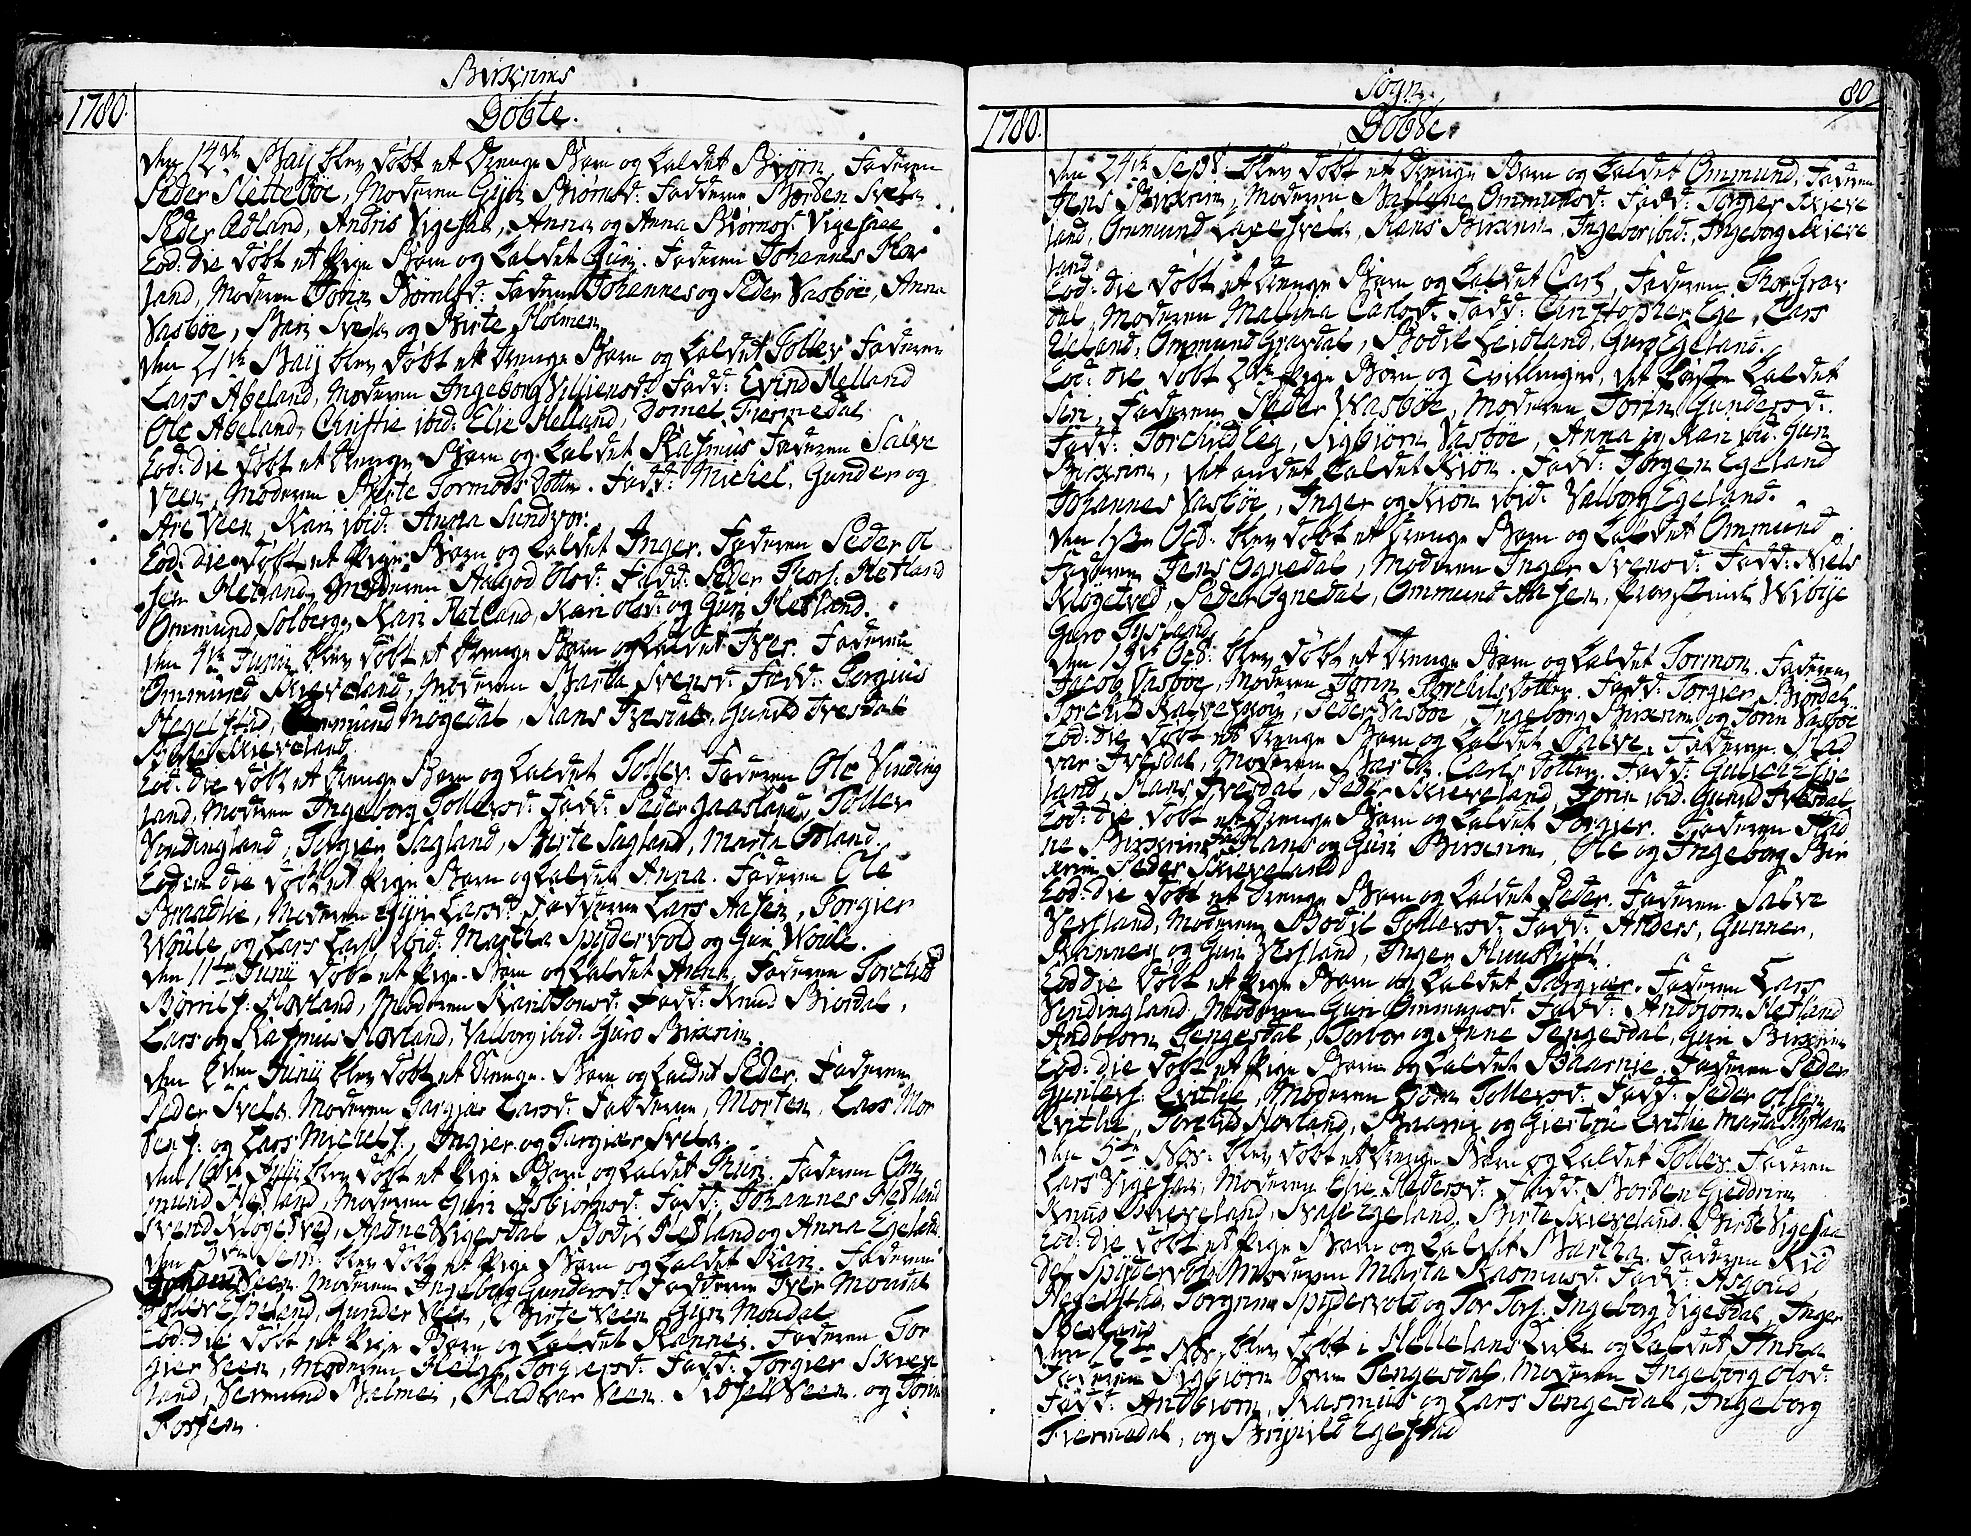 Birkrims
1780.
Döbte.
den 14de Maij blev döbt et Drenge Barn og kaldet Biörn, Faderen
Peder Sletteböe, Moderen Giön Biörnsd: Fadderne Morten Svela
Peder Ædland, Andris Vigesaa, Anna og Anna Biörnsd: Vigesaae
Eod: die döbt et Pige Barn og kaldet Guri. Faderen Johannes Hov
land, Moderen Jorin Börnilsd: Fadderne Johannes og Peder Vasböe, Anna
Vasböe, Mari Svela og Birte Holmen
den 21de Maij blev döbt et Drenge Barn og kaldet Tollev Faderen
Lars Abeland, Moderen Ingeborg Villiensd: Fadd: Evind Helland
Ole Abeland, Christie ibid: Elie Helland, Dorret Fiermedal
Eod: die döbt et Drenge Barn og kaldet Rasmus Faderen Salve
Veen, Moderen Birte Tormods Datter. Fadd: Michel, Gunder og
Are Veen, Kari ibid: Anna Sundvor.
Eod: die döbt et Pige Barn og kaldet Inger. Faderen Peder Ol
sen Hetland, Moderen Aagod Olsd: Fadd: Peder Thors: Hetland
Ommund Solberg, Kari Hetland, Kari Olsd: og Guri Hetland.
den 4de Junij blev döbt et Drenge Barn og kaldet Iver. Faderen
Ommund Skieveland, Moderen Marta Svensd: Fadd: Torgius
Hegelstad, Ommund Mögedal, Hans Ivesdal, Gunild Ivesdal
Skieveland
Eod: die döbt et Drenge Barn og kaldet Tollev. Faderen Ole Vinding
land, Moderen Ingeborg Tollevsd: Fadd: Peder Gaasland, Tollev
Vindingland, Torgier Sagland, Birte Sagland, Marta Otland.
Eodem die döbt et Pige Barn og kaldet Anna. Faderen Ole
Braadlie, Moderen Siri Larsd: Fadderne Lars Aasen, Torgier
Woule og Lars Lars: ibid: Martha Spydervold og Guri Woule.
den 11te Junij döbt et Pige Barn og kaldet Anna. Faderen Torchild
Börnils: Hovland, Moderen Kari Tonsd: Fadd: Knud Biordal,
Lars og Rasmus Hovland, Valborg ibid: Guro Birkrim.
den Junij blev döbt et Drenge Barn og kaldet Peder. Faderen
Peder Svela. Moderen Targier Larsd: Fadderne, Morten, Lars Mor
tens: og Lars Michels:, Ingier og Targier Svela.
den 16de Julij blev döbt et Pige Barn og kaldet . Faderen Om
mund Hetland, Moderen Guri Asbiörnsd: Fadd: Johannes Hetland
Svend Klogetved, Aadne Vigesdal, Bodil Hetland og Anna Egeland.
den 3de Sept: blev döbt et Pige Barn og kaldet Kari. Faderen
Veen. Moderen Ingeborg Gundersd: Fadderne Iver Moudal
Tollev Espeland, Gunder Veen, Birte Veen, Guri Moudal
Eod: die döbt et Pige Barn og kaldet Rannei. Faderen Tor
gier Veen, Moderen Helga Torgiersd: Fadd: Torgier Skieve
land, Vermund Melmen, Haavar Veen, Veen og Jorin
Tossem.
Sogn.
80
1780.
Döbte.
den 24de Sept: blev döbt et Drenge Barn og kaldet Ommund. Faderen
Jens Birkrim, Moderen Mallene Ommundsd: Fadd: Torgier Skieve
land, Ommund Laxesvela, Hans Birkrim, Ingebor ibid:, Ingeborg Skieve
land.
Eod: die döbt et Drenge Barn og kaldet Carl, Faderen Thor Grav
dal, Moderen Malena Carlsd: Fadd: Christopher Ege, Lars
Ueland, Ommund Gravdal, Bodil Leidland, Guro Egeland.
Eod: die döbt 2de Pige Börn og Tvillinger, det förste kaldet
Siri, Faderen Peder Wasböe, Moderen Jorin Gundersd:
Fadd: Torchild Eeg, Sigbjörn Vasböe, Anna og Kari ibid. Guri
Birkrim, det andet kaldet Kiön. Fadd: Jörgen Egeland
Johannes Vasböe, Inger og Kiön ibid: Valborg Egeland.
den 1ste Oct: blev döbt et Drenge Barn og kaldet Ommund
Faderen Jens Ognedal, Moderen Inger Svensd: Fadd: Niels
Klogetved, Peder Ognedal, Ommund Aasen, Wibije
Guro Tysland
den 15de Oct: blev döbt et Drenge Barn og kaldet Tormon. Faderen
Jacob Vasböe, Moderen Jorin Torchilsdatter. Fadd: Torgier Biordal
Torchild Kalvekiön, Peder Vasböe, Ingeborg Birkrim og Jorin Vasböe
Eod: die döbt et Drenge Barn og kaldet Salve. Faderen Haad
var Ivesdal, Moderen Marta Carls Dotter. Fadd: Gulich Espe
land, Hans Ivesdal, Peder Skieveland, Jorin ibid. Gunild Ivesdal
Eod: die döbt et Drenge Barn og kaldet Torgier. Faderen Aad
ne Birkrim, Fadd: Hans og Guri Birkrim, Ole og Ingeborg Bir
krim Peder Skieveland
Eod: die döbt et Drenge Barn og kaldet Peder. Faderen Salve
Vesland, Moderen Bodil Tollevsd: Fadd: Anders, Gunner,
Rannei og Guri Vesland, Inger
Eod die döbt et Pige Barn og kaldet Targier. Faderen Lars
Vindingland, Moderen Guri Ommunsd: Fadd: Andbiörn Hetland
Andbiorn Tengesdal, Torbor og Anne Tengesdal, Guri Birkrim
Eod: die döbt et Pige Barn og kaldet Baarnie. Faderen Peder
Gunlevs: Qvitlie, Moderen Jörin Tollevsd: Fadd: Peder Olsen
Qvitlie, Torchild Hovland, Baarni og Giertru Qvitlie Marta Hofland
den 5te Nov: blev döbt et Drenge Barn og kaldet Tollev. Faderen
Lars Vigesaae, Moderen Elie Pedersd: Fadd: Morten Giedrem
Knud Skieveland, Svale Egeland, Birte Skieveland, Birte Vigesaa
Eod: die döbt et Pige Barn og kaldet Martha. Faderen Kid
del Spydervold, Moderen Marta Rasmusd: Fadd: Asgoud
Hegelstad, Torgrim Spydervold og Tor Tors:, Ingeborg Vigesdal, Inger
Sleveland
den 12te Nov: blev döbt i Hellelands Kirke og kaldet Anna
Faderen Sigbiörn Tengesdal, Moderen Ingeborg Olsd:
Fadd: Andbiörn, Rasmus og Lars Tengesdal, Ingeborg
Fiermedal, og Bryild Egestad